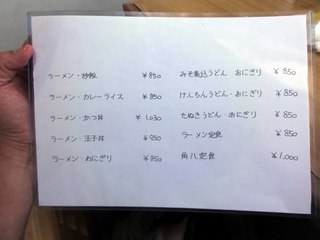 ラーメン・炒飯 ¥850
ラーメン・カレーライス ¥850
ラーメン・かつ丼 ¥1,030
ラーメン・玉子丼 ¥950
ラーメン・おにぎり ¥850
みそ煮込うどん おにぎり ¥850
けんちんうどん・おにぎり ¥850
たぬきうどん・おにぎり ¥850
ラーメン定食 ¥850
角八定食 ¥1,000